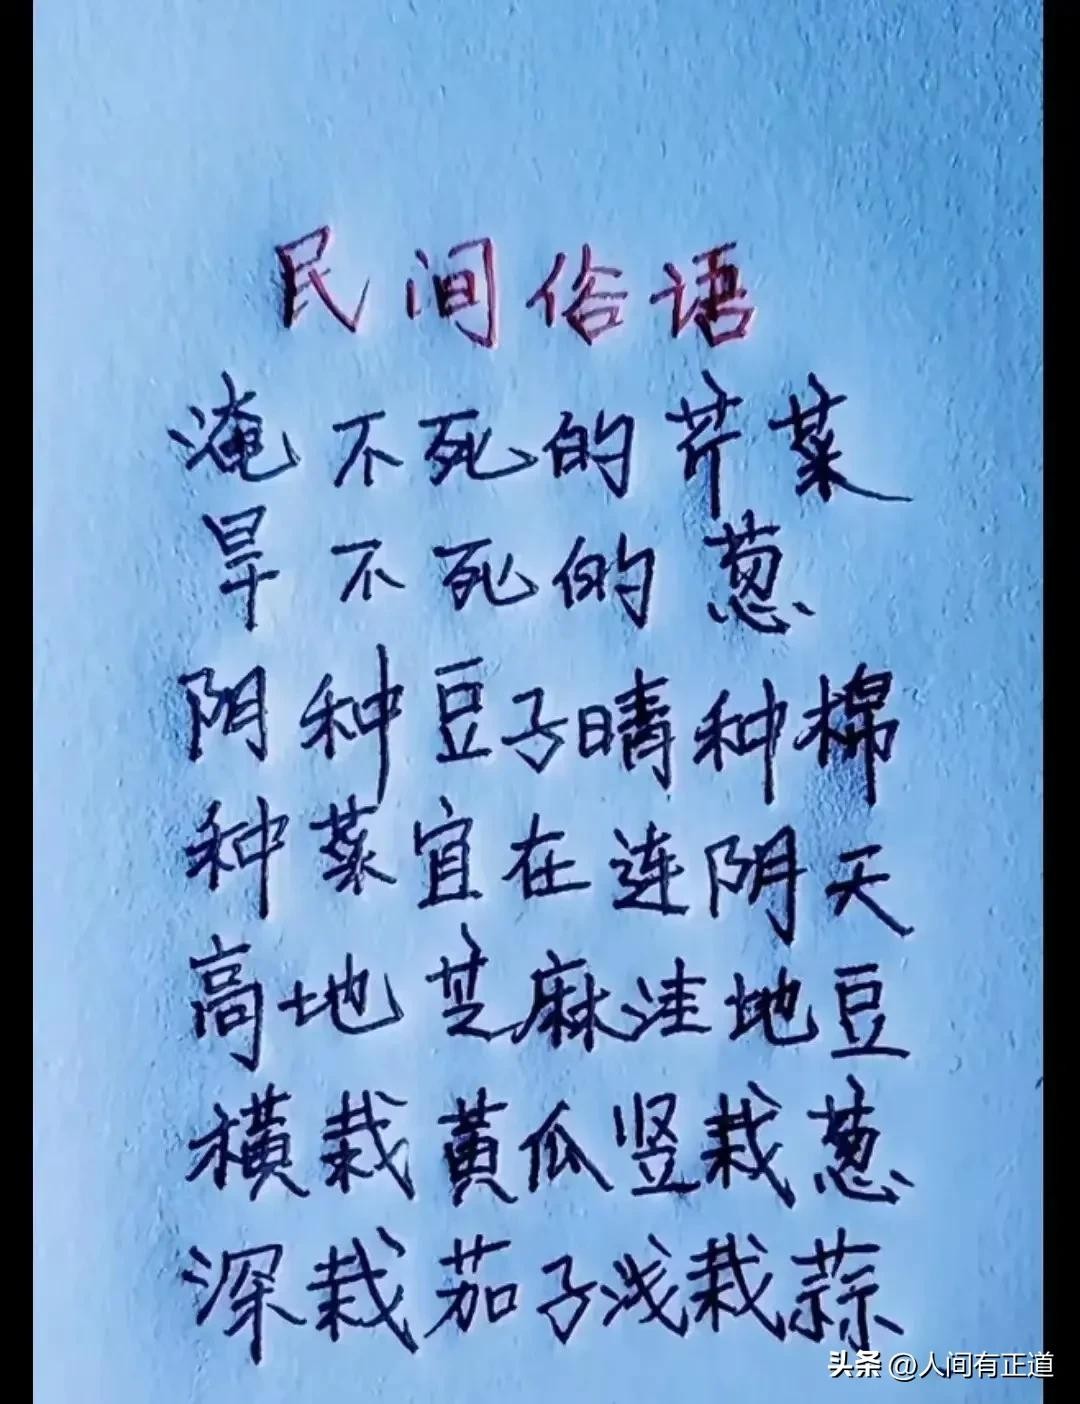 民间俗语
淹不死的芹菜
旱不死的葱
阴种豆子晴种棉
种菜宜在连阴天
高地芝麻洼地豆
横栽黄瓜竖栽葱
深栽茄子浅栽蒜
头条 @人间有正道